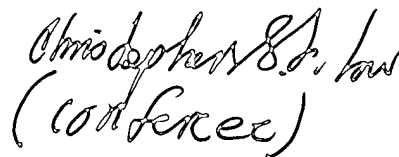 Christopher S.L. Low
(conferee)